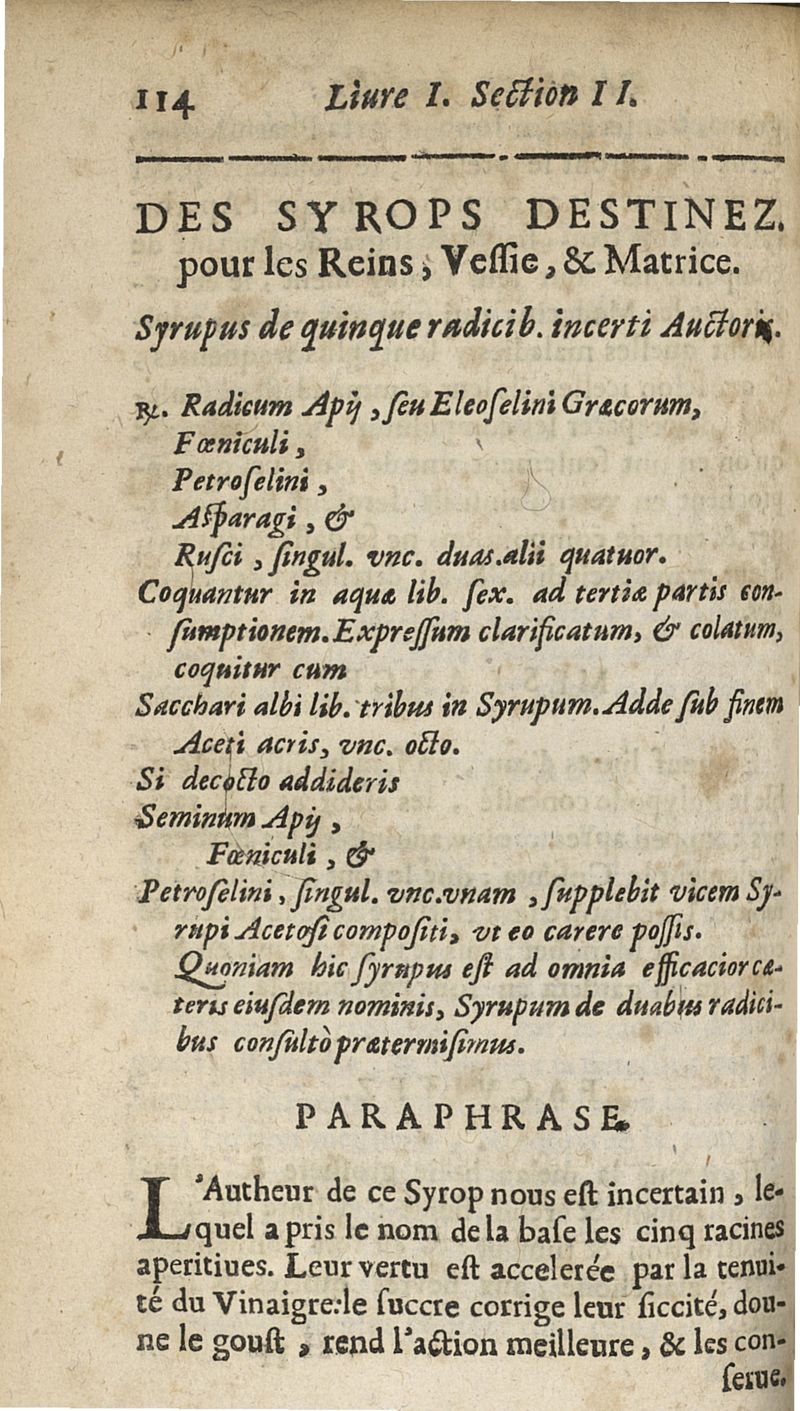 114 Liure I. Section II.
DES SYROPS DESTINEZ.
pour les Reins, Vessie, & Matrice.
Syrupus de quinque radicib. incerti Auctoris.
℞. Radicum Apij, ſeu Eleoſelini Græcorum,
Fœniculi,
Petroſelini,
Aſparagi, &
Ruſci, ſingul. vnc. duas. alii quatuor.
Coquantur in aquæ lib. ſex. ad tertiæ partis con-
ſumptionem. Expreſſum clarificatum, & colatum,
coquitur cum
Sacchari albi lib. tribus in Syrupum. Adde ſub finem
Aceti acris, vnc. octo.
Si decocto addideris
Seminum Apij,
Fœniculi, &
Petroſelini, ſingul. vnc. vnam, ſupplebit vicem Sy-
rupi Acetoſi compoſiti, vt eo carere poſſis.
Quoniam hic ſyrupus eſt ad omnia efficacior cæ-
teris eiuſdem nominis, Syrupum de duabus radici-
bus conſultò prætermiſimus.
PARAPHRASE.
L'Autheur de ce Syrop nous eſt incertain, le-
quel a pris le nom de la baſe les cinq racines
aperitiues. Leur vertu eſt accelerée par la tenui-
té du Vinaigre: le ſuccre corrige leur ſiccité, don-
ne le gouſt, rend l'action meilleure, & les con-
ſerue.